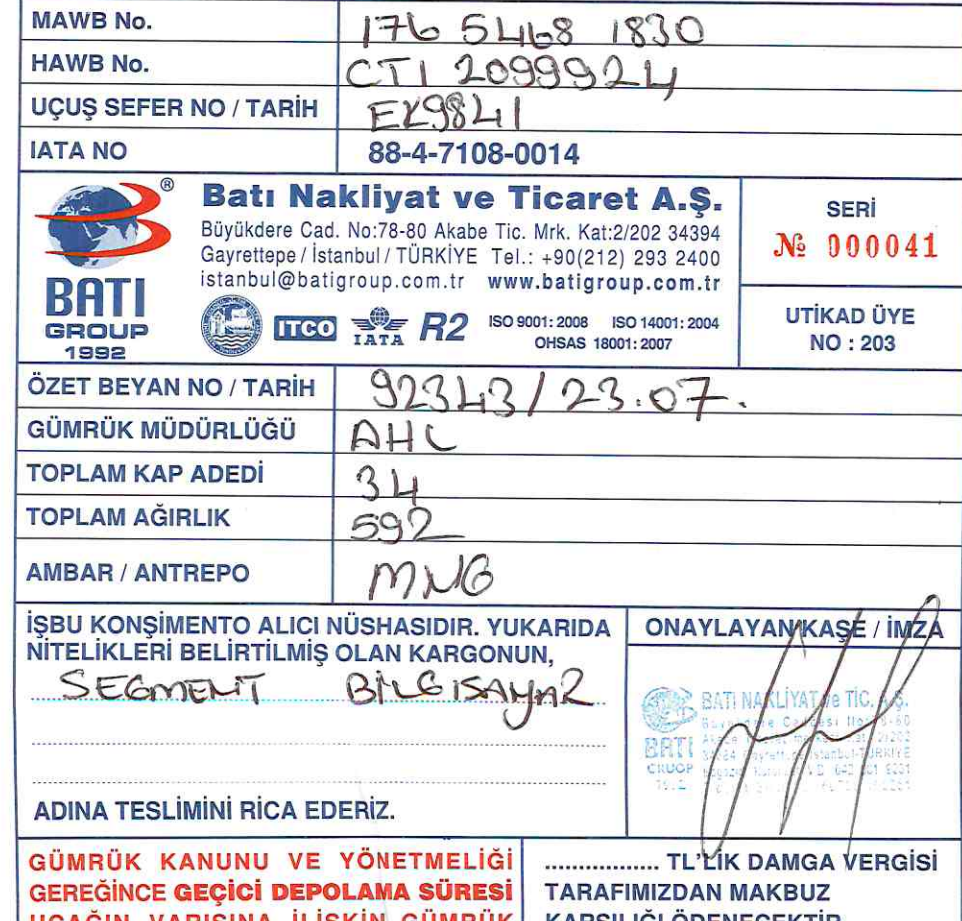 MAWB No. 176 5468 1830
HAWB No. CTI 2099924
UÇUŞ SEFER NO / TARİH EK9841
IATA NO 88-4-7108-0014
Batı Nakliyat ve Ticaret A.Ş.
Büyükdere Cad. No:78-80 Akabe Tic. Mrk. Kat:2/202 34394
Gayrettepe / İstanbul / TÜRKİYE Tel.: +90(212) 293 2400
istanbul@batigroup.com.tr www.batigroup.com.tr
BATI
GROUP
1992
ITCO IATA R2 ISO 9001: 2008 ISO 14001: 2004
OHSAS 18001: 2007
SERİ
№ 000041
UTİKAD ÜYE
NO : 203
ÖZET BEYAN NO / TARİH 92343/23.07.
GÜMRÜK MÜDÜRLÜĞÜ AHL
TOPLAM KAP ADEDİ 34
TOPLAM AĞIRLIK 592
AMBAR / ANTREPO MNG
İŞBU KONŞİMENTO ALICI NÜSHASIDIR. YUKARIDA
NİTELİKLERİ BELİRTİLMİŞ OLAN KARGONUN,
SEGMENT BİLGİSAYAR
ADINA TESLİMİNİ RİCA EDERİZ.
ONAYLAYAN KAŞE / İMZA
BATI NAKLİYAT ve TİC. A.Ş.
BATI
GROUP
GÜMRÜK KANUNU VE YÖNETMELİĞİ
GEREĞİNCE GEÇİCİ DEPOLAMA SÜRESİ
UÇAĞIN VARIŞINA İLİŞKİN GÜMRÜK
................. TL'LİK DAMGA VERGİSİ
TARAFIMIZDAN MAKBUZ
KARŞILIĞI ÖDENECEKTİR